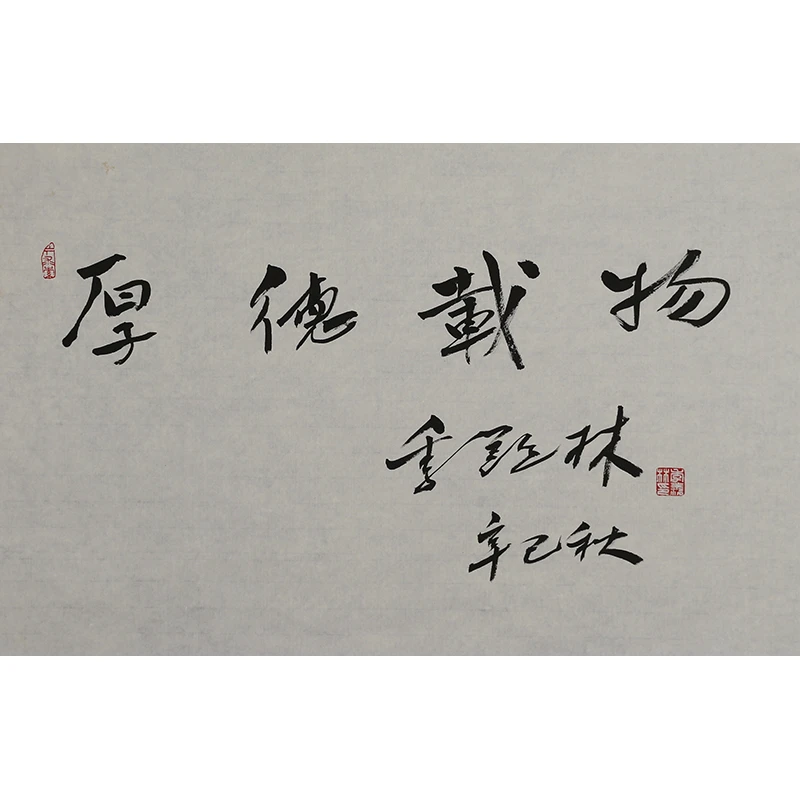 厚德載物
季羡林
辛巳秋